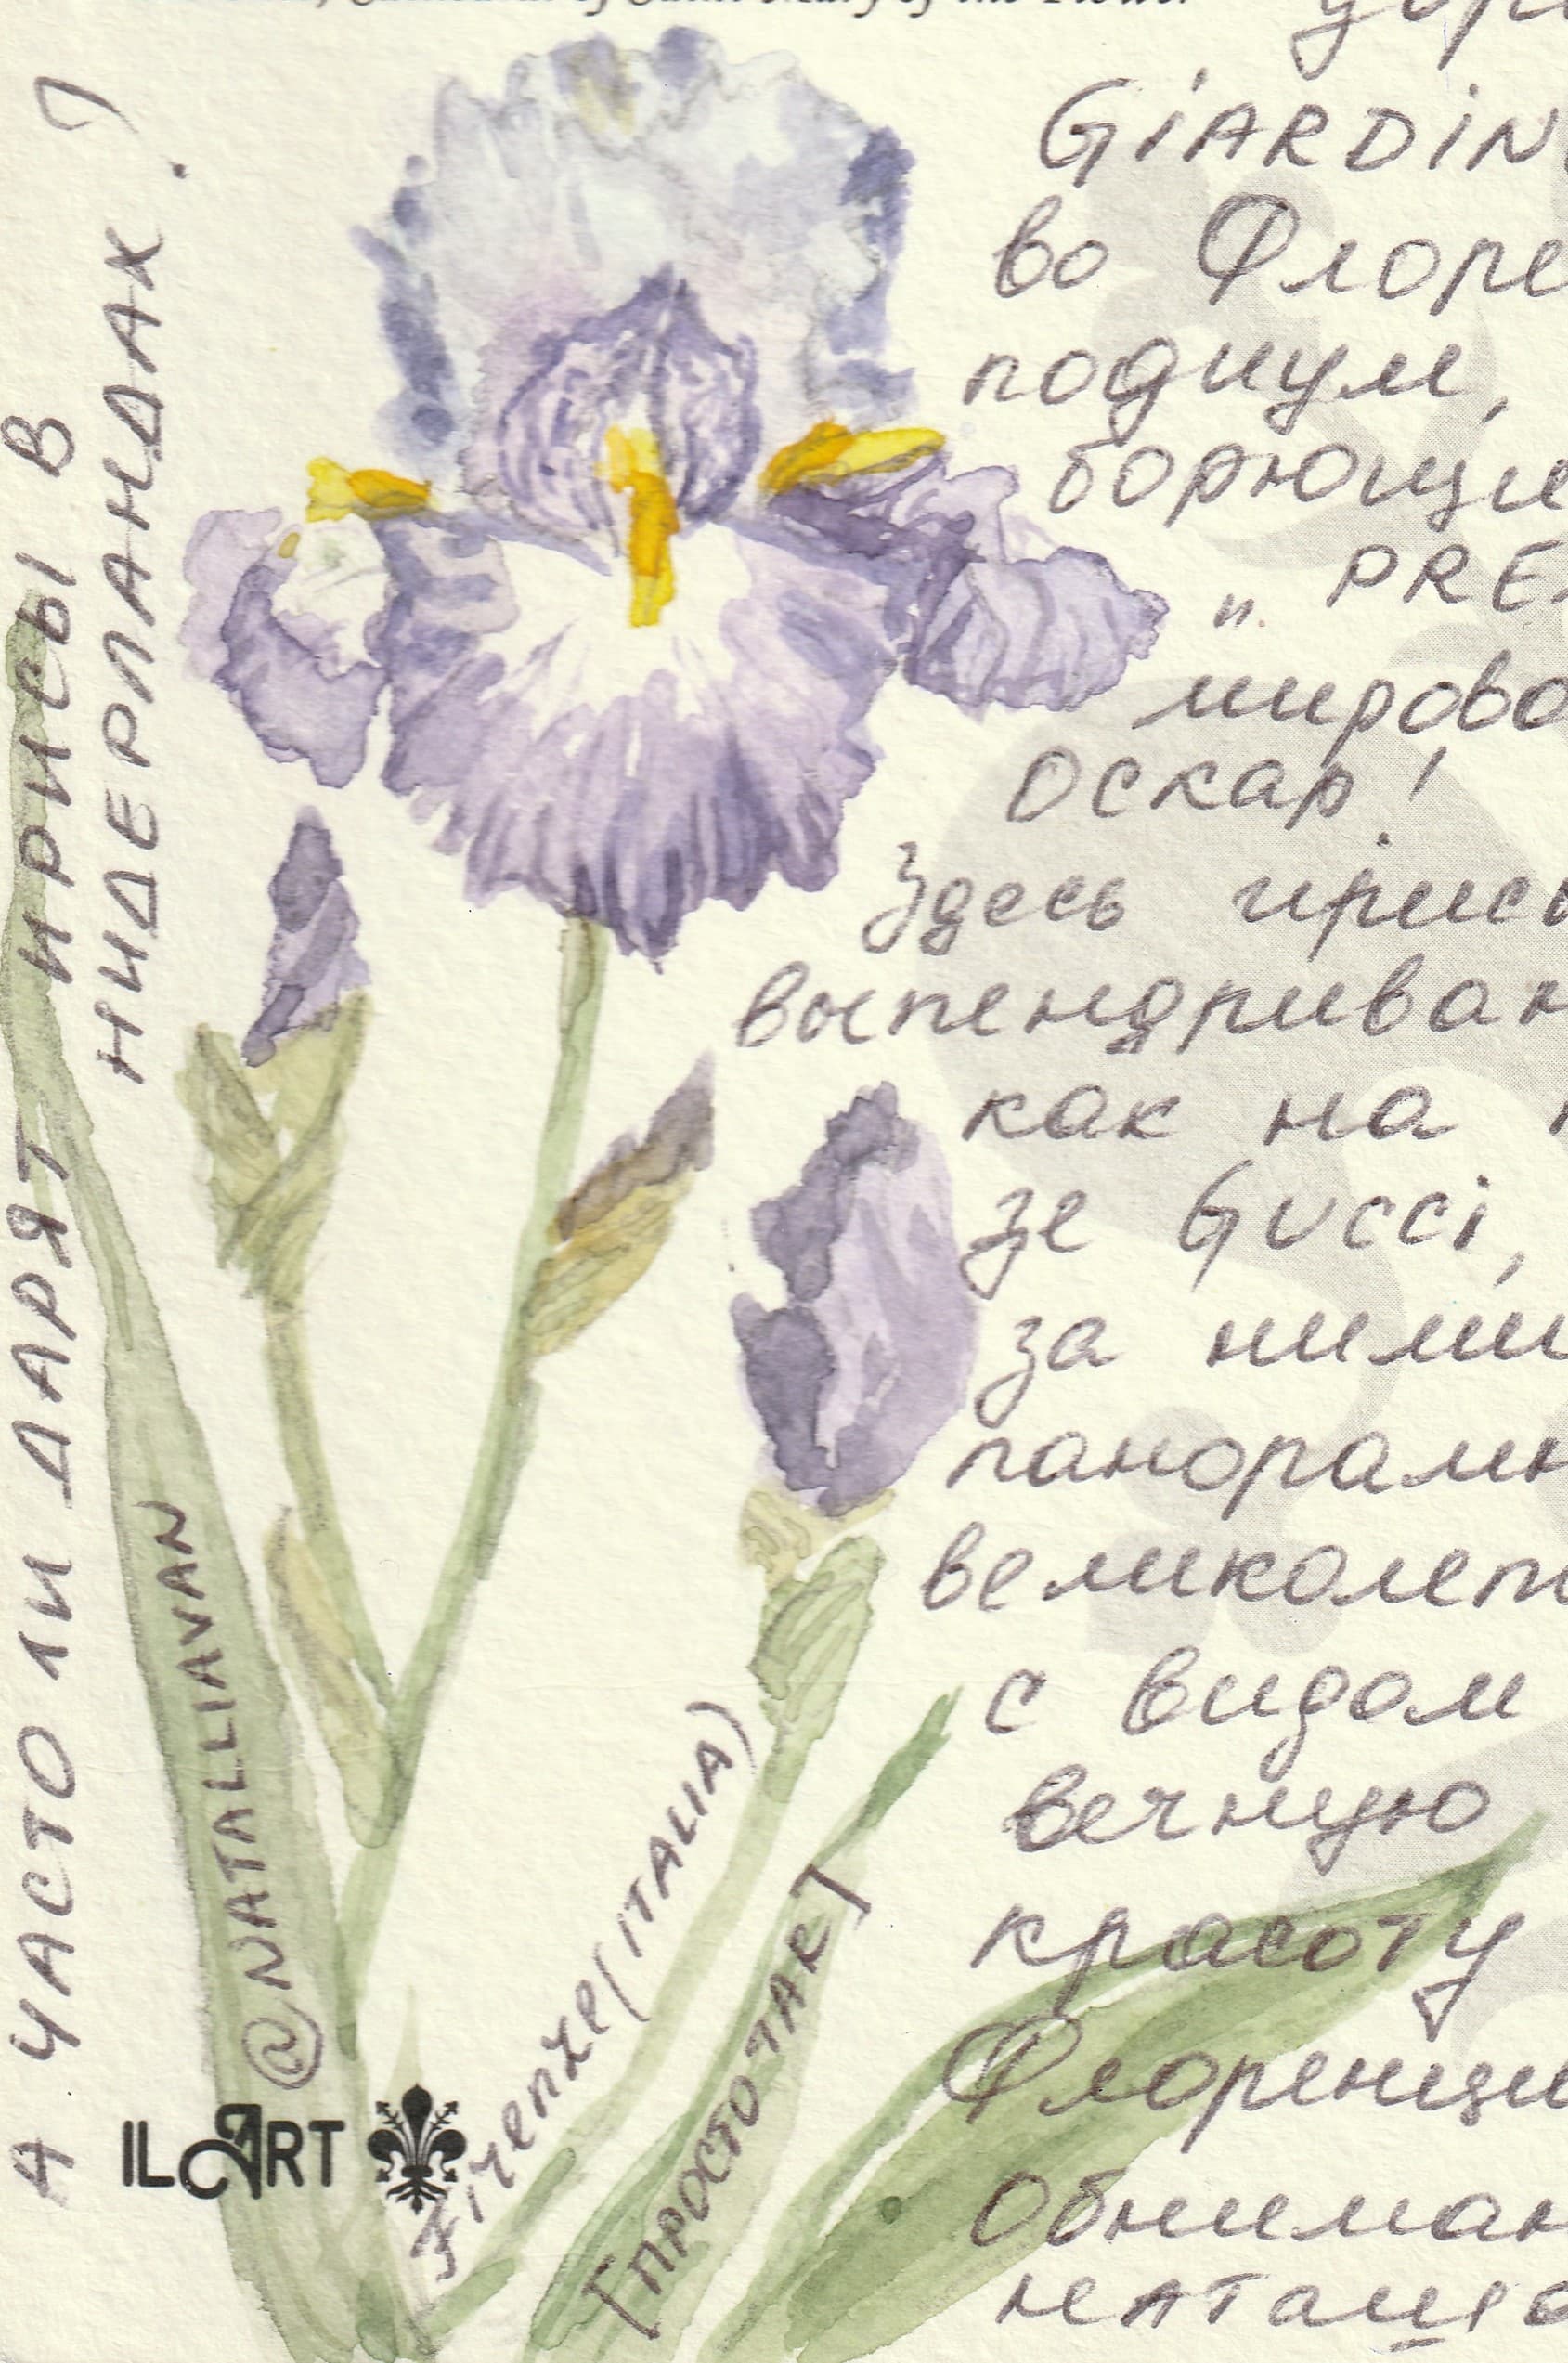 Cathedral of Saint Mary of the Flower
GIARDIN
во Флоре
подиум,
борющие
„ PRE
мирово
Оскар!
Здесь ирисы
выпендриваю
как на
зе Gucci,
за ними
панорамн
великолепн
с видом
вечную
красоту
Флоренции
Обнимаю
НАТАША
А ЧАСТО ЛИ ДАРЯТ ИРИСЫ В
НИДЕРЛАНДАХ?
@NATALLIAVAN
Firenze (ITALIA)
[ПРОСТО TAR]
ILART